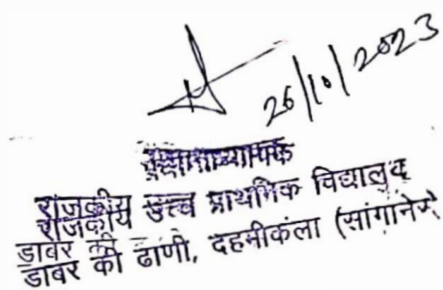 26/10/2023
प्रधानाध्यापक
राजकीय उच्च प्राथमिक विद्यालय
डाबर की ढाणी, दहमीकला (सांगानेर)